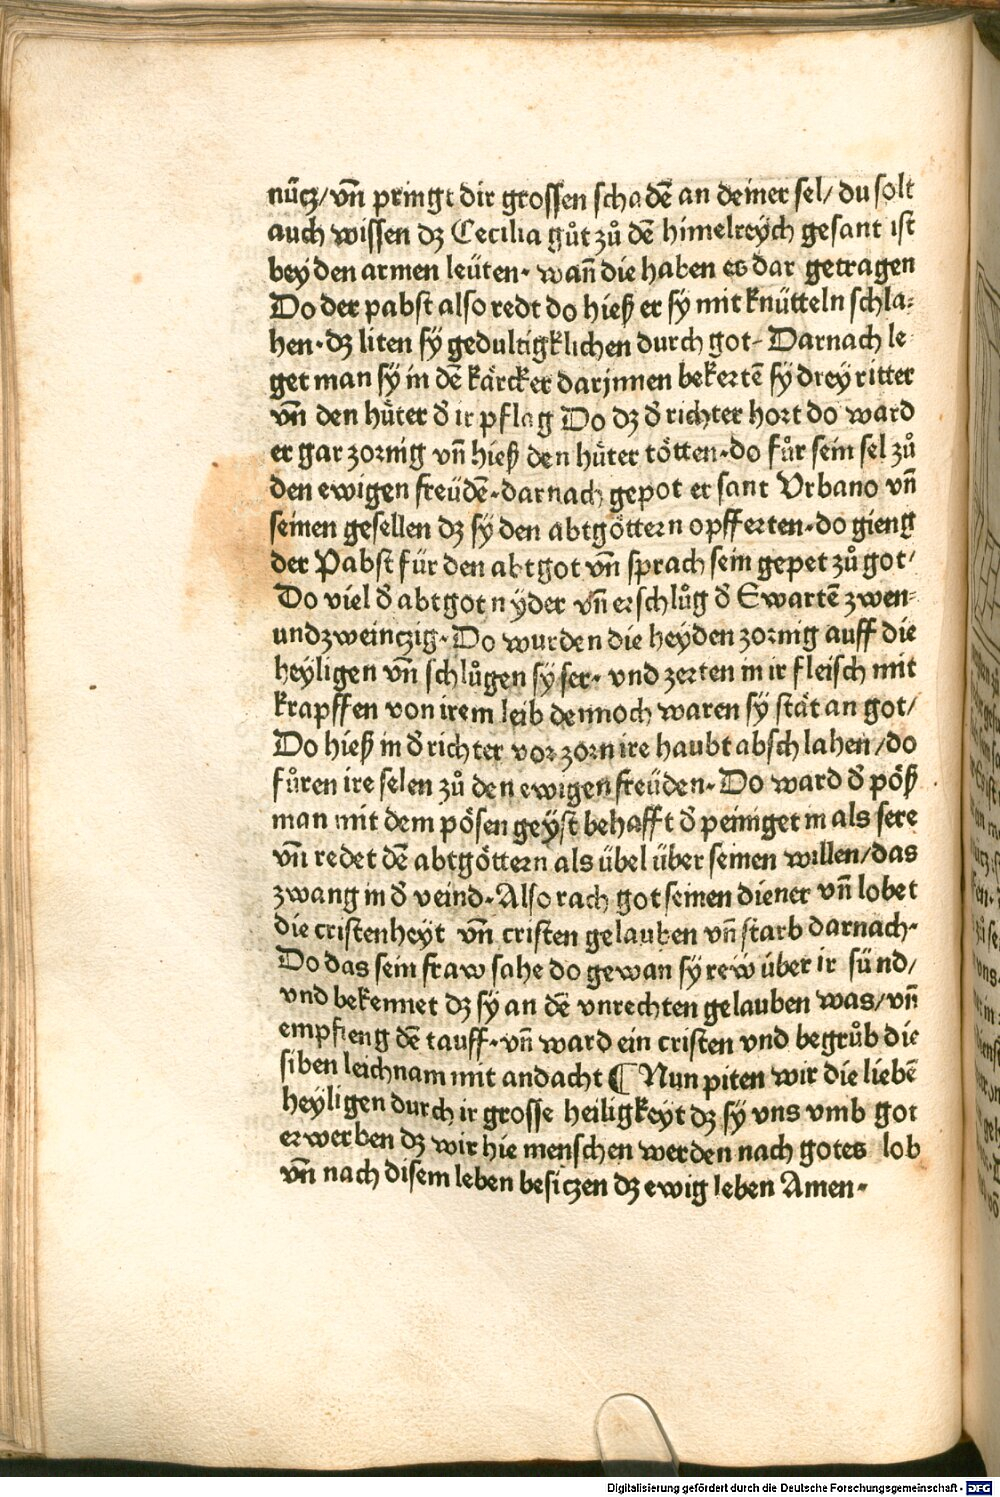 nücz/ vñ pringt dir grossen schadẽ an deiner sel/ du solt
auch wissen dz Cecilia gůt zů dẽ himelreÿch gesant ist
beÿ den armen leüten· wañ die haben es dar getragen
Do der pabst also redt do hieß er sÿ mit knütteln schla⸗
hen· dz liten sÿ gedultigklichen durch got· Darnach le
get man sÿ in dẽ kärcker darjnnen bekertẽ sÿ dreÿ ritter
vñ den hüter đ ir pflag Do dz đ richter hort do ward
er gar zornig vñ hieß den hüter tötten· do fůr sein sel zů
den ewigen freüdẽ· darnach gepot er sant Vrbano vñ
seinen gesellen dz sÿ den abtgöttern opfferten· do gieng
der Pabst für den abtgot vñ sprach sein gepet zů got/
Do viel đ abtgot nÿder vñ erschlůg đ Ewartẽ zwen⸗
undzweinczig· Do wurden die heyden zornig auff die
heyligen vñ schlůgen sÿ ser· vnd zerten in ir fleisch mit
krapffen von irem leib dennoch waren sÿ stät an got/
Do hieß in đ richter vor zorn ire haubt abschlahen/ do
fůren ire selen zů den ewigen freüden· Do ward đ pöß
man mit dem pösen geÿst behafft đ peiniget in als sere
vñ redet dẽ abtgöttern als übel über seinen willen/ das
zwang in đ veind· Also rach got seinen diener vñ lobet
die cristenheÿt vñ cristen gelauben vñ starb darnach·
Do das sein fraw sahe do gewan sÿ rew über ir sünd/
vnd bekennet dz sÿ an dẽ vnrechten gelauben was/ vñ
empfieng dẽ tauff· vñ ward ein cristen vnd begrůb die
siben leichnam mit andacht ¶ Nun piten wir die liebẽ
heyligen durch ir grosse heiligkeyt dz sÿ vns vmb got
erwerben dz wir hie menschen werden nach gotes lob
vñ nach disem leben besiczen dz ewig leben Amen·
Digitalisierung gefördert durch die Deutsche Forschungsgemeinschaft - DFG